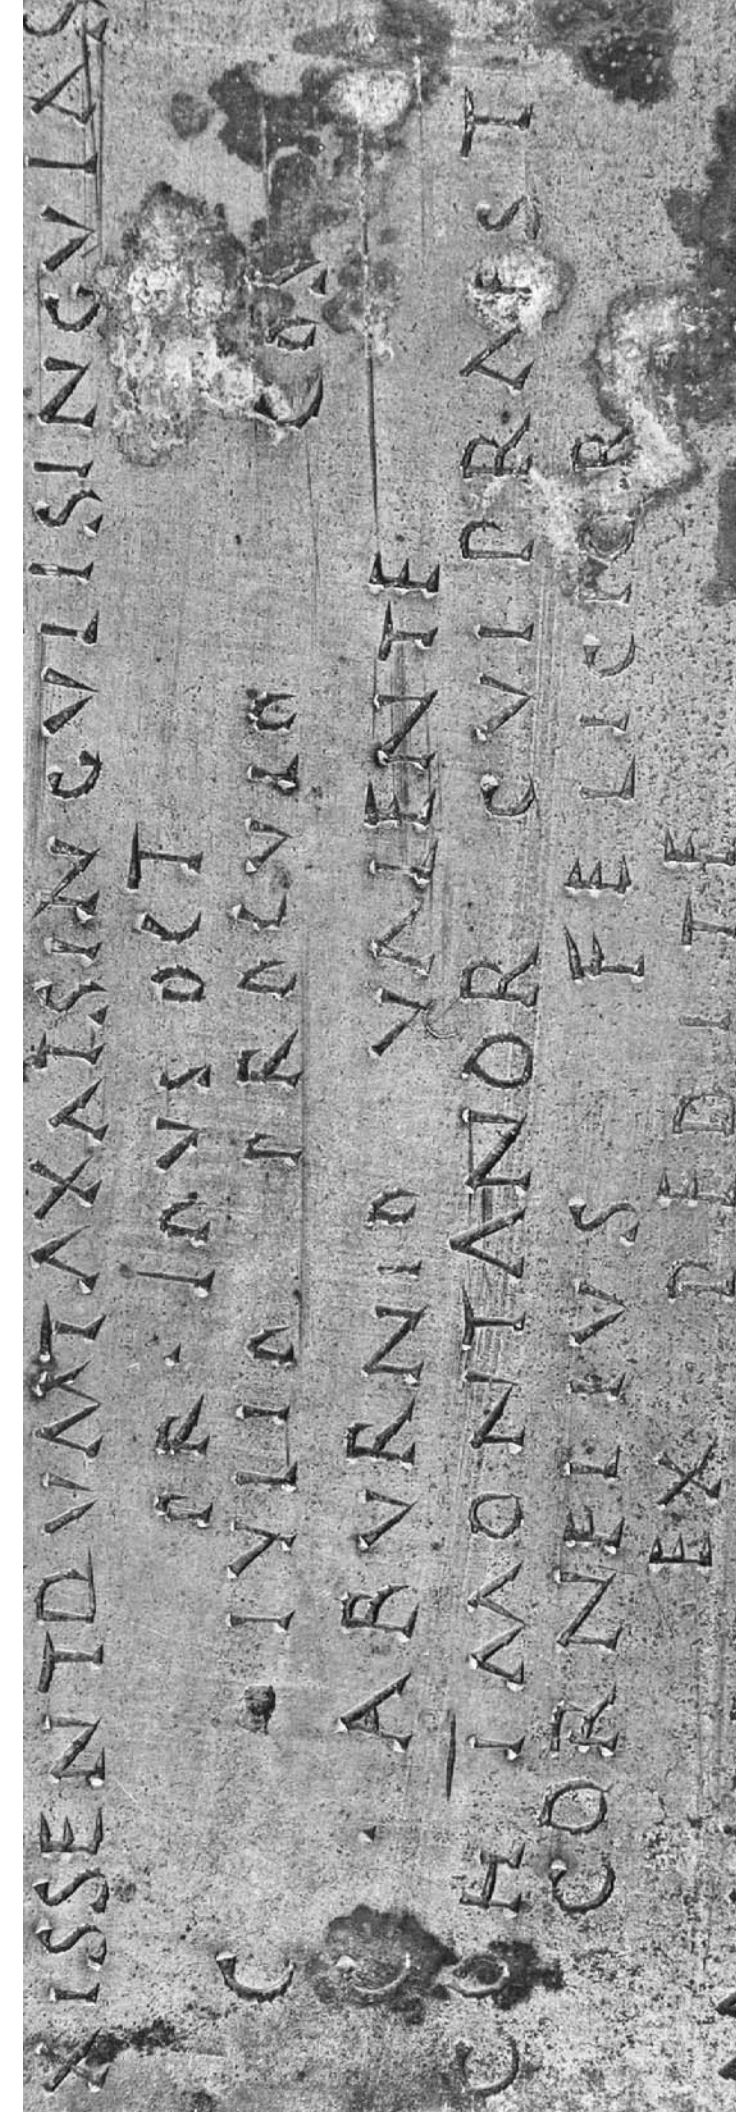 XISSENT DVMTAXAT SINGVLI SINGVLAS
PR · IDVS OCT
C · IVLIO PROCVLO COS
C · ABVRNIO VALENTE
COH I MONTANOR CVI PRAEST
CORNELIVS FELICIOR
EX PEDITE